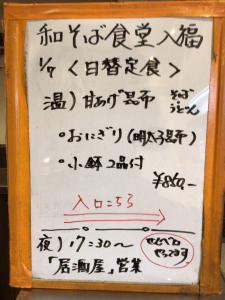 和そば食堂入福
1/7 <日替定食>
温) 甘あげ昆布 そば うどん
・おにぎり(明太子昆布)
・小鉢2品付
¥860-
入口こちら
夜) 17:30〜
「居酒屋」営業
せんべろ
やってます